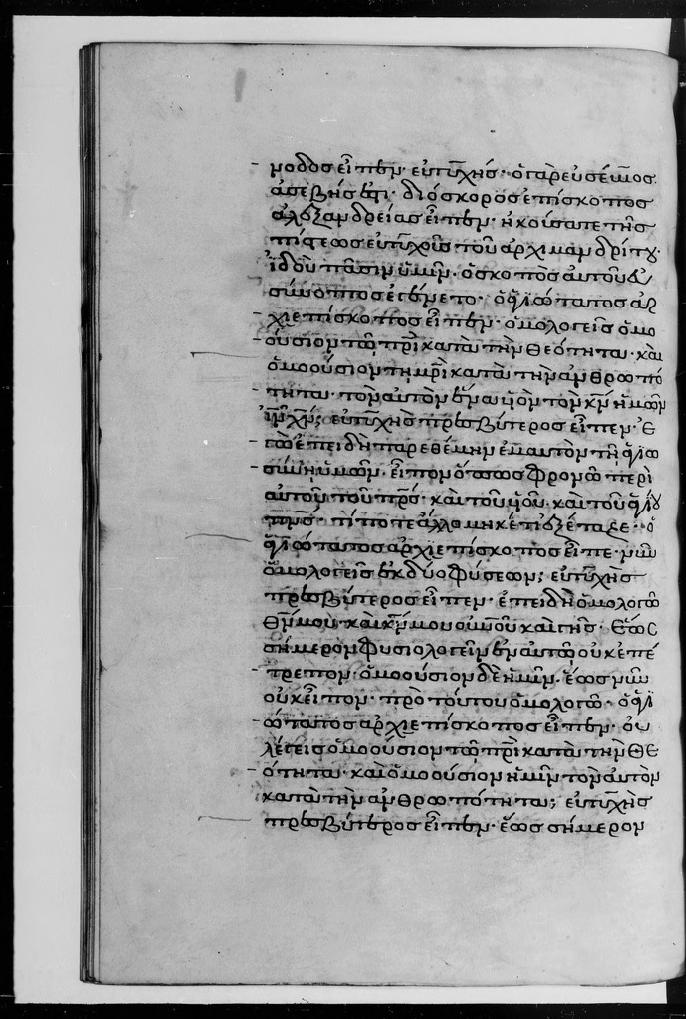 νοδος εἶπεν· εὐτυχής· ὁ γὰρ εὐσέβιος
ἀσεβής ἐστι· διόσκορος ἐπίσκοπος
ἀλεξανδρείας εἶπεν· ἠκούσατε τῆς
πίστεως εὐτυχοῦς τοῦ ἀρχιμανδρίτου·
ἰδοὺ πᾶσιν ὑμῖν· ὁ σκοπὸς αὐτοῦ
σύνοπτος ἐγένετο· ὁ ἁγιώτατος ἀρ
χιεπίσκοπος εἶπεν· ὁμολογεῖς ὁμο
ούσιον τῶ πρι κατὰ τὴν θεότητα· καὶ
ὁμοούσιον τῆ μρι κατὰ τὴν ἀνθρωπό
τητα· τὸν αὐτὸν ἕνα υἱὸν τὸν κν ἡμῶν
ιν χν; εὐτυχὴς πρεσβύτερος εἶπεν· ἐ
γὼ ἐπειδὴ παρεθέμην ἐμαυτὸν τῆ ἁγιω
σύνη ὑμῶν· εἶπον ὅπως φρονῶ περὶ
αὐτοῦ τοῦ πρς· καὶ τοῦ υἱοῦ· καὶ τοῦ ἁγίου
πνς· τίποτε ἄλλο μηκέτι ἐξέταζε· ὁ
ἁγιώτατος ἀρχιεπίσκοπος εἶπε· νῦν
ὁμολογεῖς ἐκ δύο φύσεων; εὐτυχὴς
πρεσβύτερος εἶπεν· ἐπειδὴ ὁμολογῶ
θν μου καὶ κν μου οὐνοῦ καὶ γῆς· ἕως
σήμερον φυσιολογεῖν ἐν αὐτῶ οὐκ ἐπέ
τρεπον· ὁμοούσιον δὲ ἡμῖν· ἕως νῦν
οὐκ εἶπον· πρὸ τούτου ὁμολογῶ· ὁ ἁγι
ώτατος ἀρχιεπίσκοπος εἶπεν· οὐ
λέγεις ὁμοούσιον τῶ πρι κατὰ τὴν θε
ότητα· καὶ ὁμοούσιον ἡμῖν τὸν αὐτὸν
κατὰ τὴν ἀνθρωπότητα; εὐτυχὴς
πρεσβύτερος εἶπεν· ἕως σήμερον